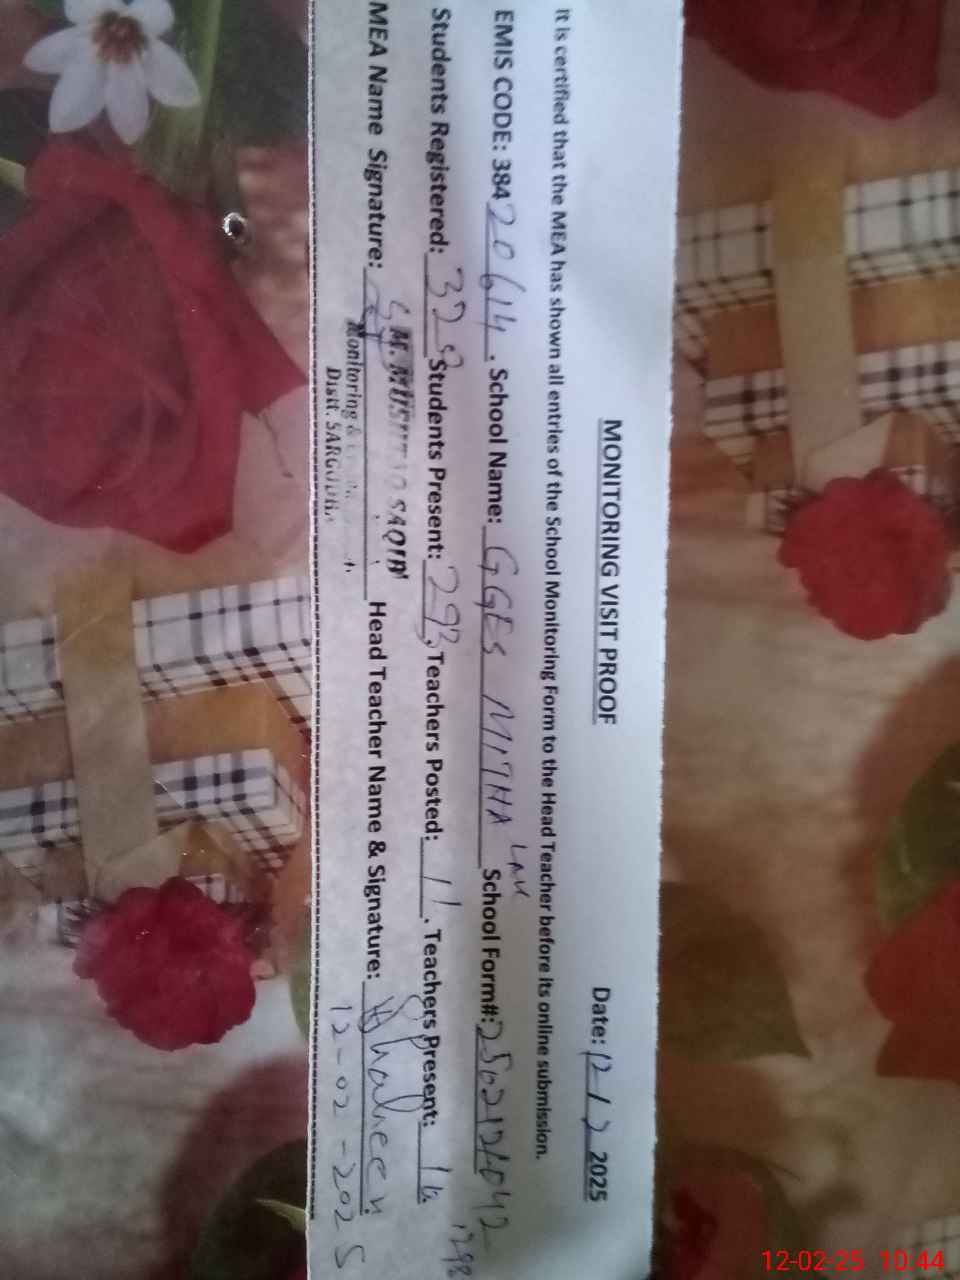 MONITORING VISIT PROOF
Date: 12/2 2025
It is certified that the MEA has shown all entries of the School Monitoring Form to the Head Teacher before its online submission.
EMIS CODE: 38420614. School Name: GGES MITHA LAK School Form#:
Students Registered: 323 Students Present: 293, Teachers Posted: 11. Teachers Present: 10
MEA Name Signature: Head Teacher Name & Signature: Shaheen
M. MUSHTAQ SAQIB
Monitoring &
Distt. SARGODHA
12-02-2025
12-02-25 10:44